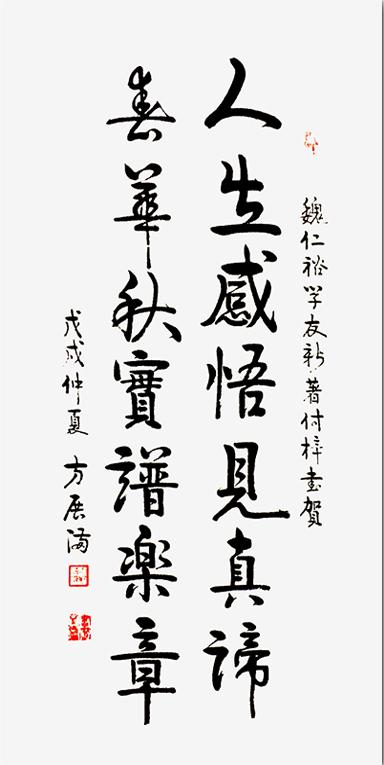 魏仁裕学友新著付梓书贺
人生感悟見真諦
春華秋實譜楽章
戊戌仲夏 方展满